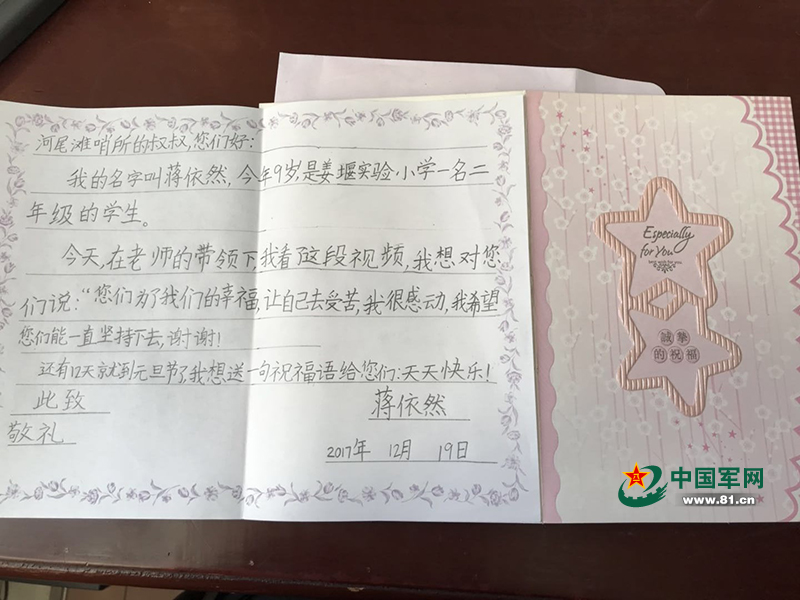 河尾滩哨所的叔叔,您们好:
我的名字叫蒋依然,今年9岁,是姜堰实验小学一名二
年级的学生。
今天,在老师的带领下,我看了这段视频,我想对您
们说:“您们为了我们的幸福,让自己去受苦,我很感动,我希望
您们能一直坚持下去,谢谢!
还有12天就到元旦节了,我想送一句祝福语给您们:天天快乐!
此致
敬礼
蒋依然
2017年 12月 19日
Especially
for You
誠摯
的祝福
中国军网
www.81.cn